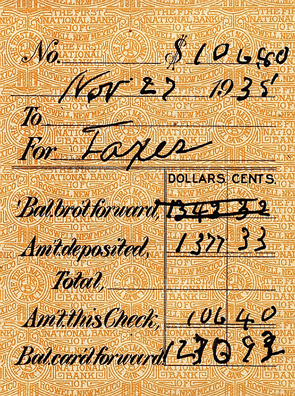 No. $ 106.40
Nov 27 1935
To
For Taxes
DOLLARS. CENTS.
Bal. bro't forward,
Am't. deposited, 1377 33
Total,
Am't. this Check, 106 40
Bal. car'd forward